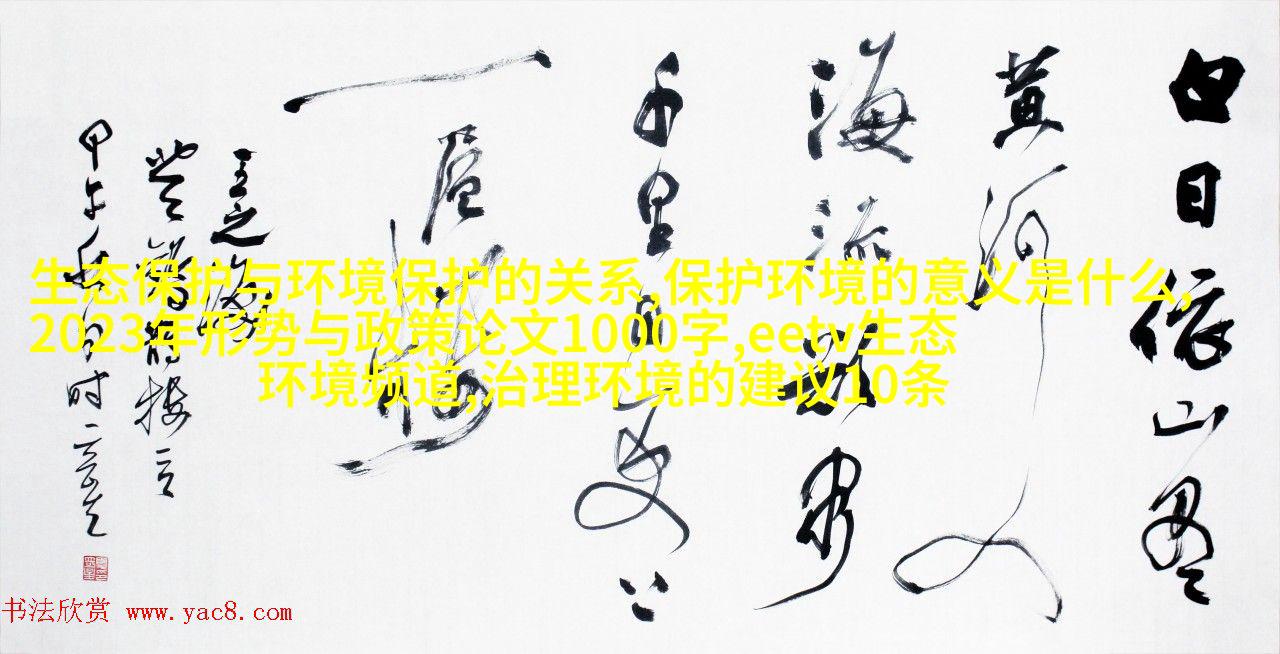 白日依山尽
黄河入
海流欲穷
千里目更上
一层楼
王之涣
登鹳雀楼
甲午秋月时
生态保护与环境保护的关系,保护环境的意义是什么,
2023年形势与政策论文1000字,eetv生态
环境频道,治理环境的建议10条
书法欣赏 www.yac8.com